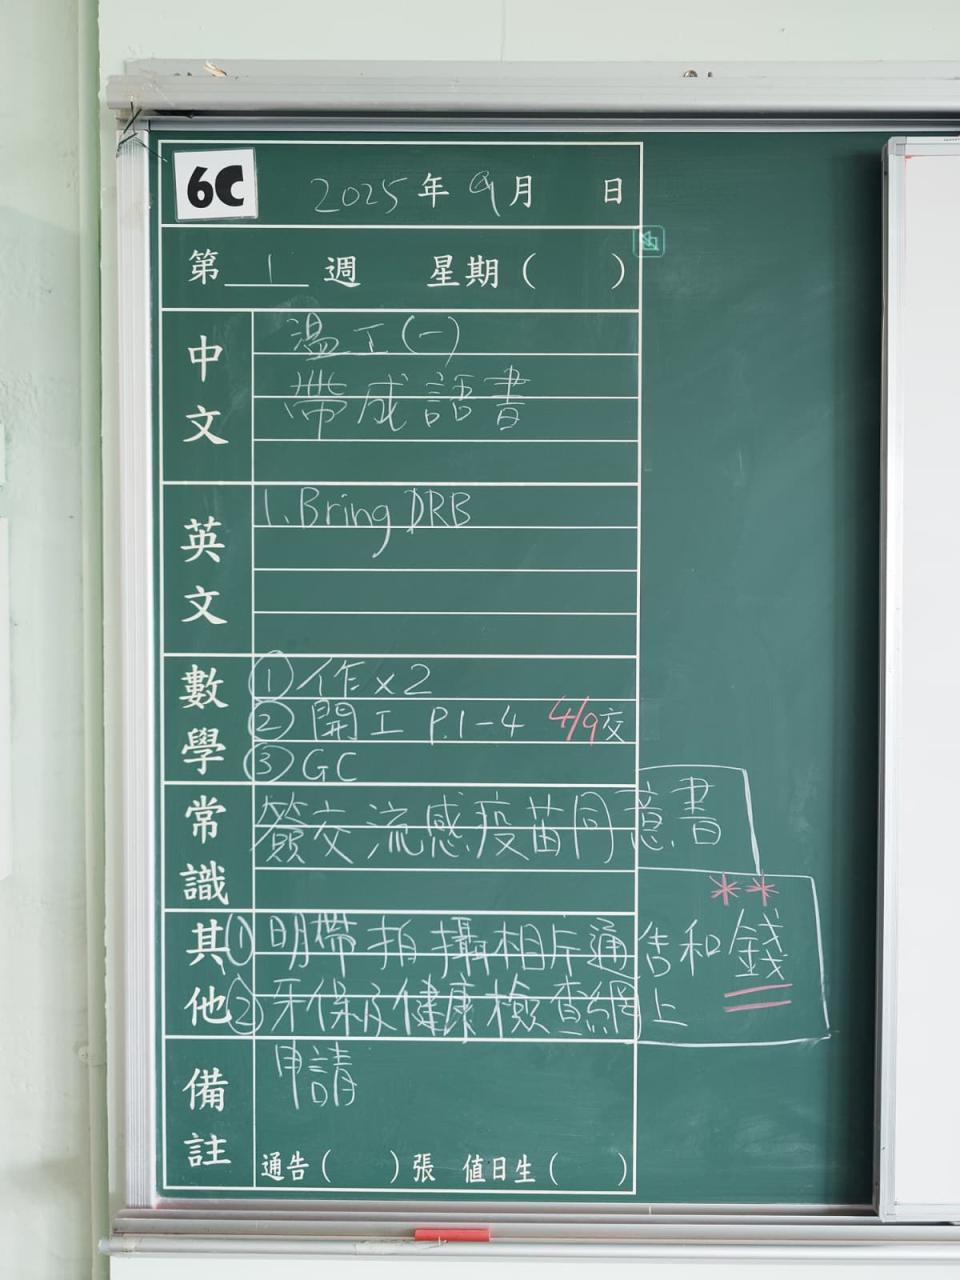 6C 2025年9月 日
第 1 週 星期( )
中文
溫工(一)
帶成語書
英文
1. Bring DRB
數學
① 作x2
② 開工 P.1-4 4/9交
③ GC
常識
簽交流感疫苗同意書
其他
**
① 明帶拍攝相片通告和錢
② 牙保及健康檢查網上
備註
申請
通告( )張 值日生( )